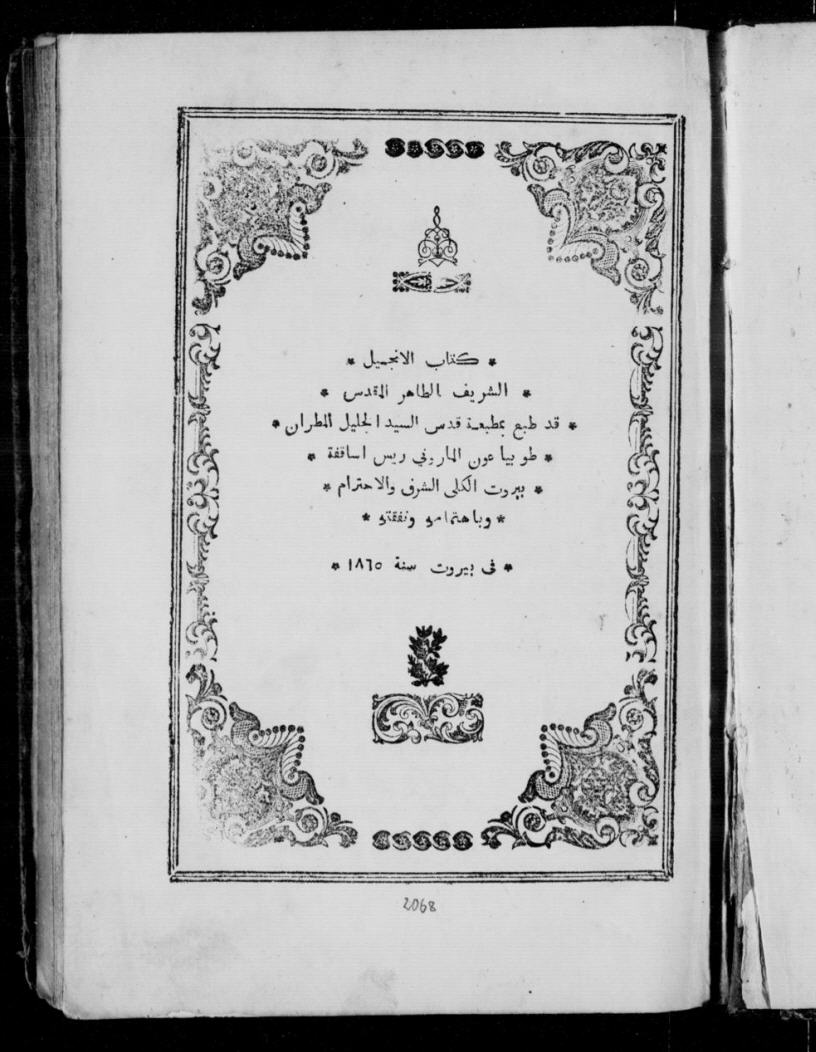 * كتاب الانجيل *
* الشريف الطاهر المقدس *
* قد طبع بمطبعة قدس السيد الجليل المطران *
* طوبيا عون الماروني ريس اساقفة *
* بيروت الكلي الشرف والاحترام *
* وباهتمامه ونفقته *
* في بيروت سنة ١٨٦٥ *
2068